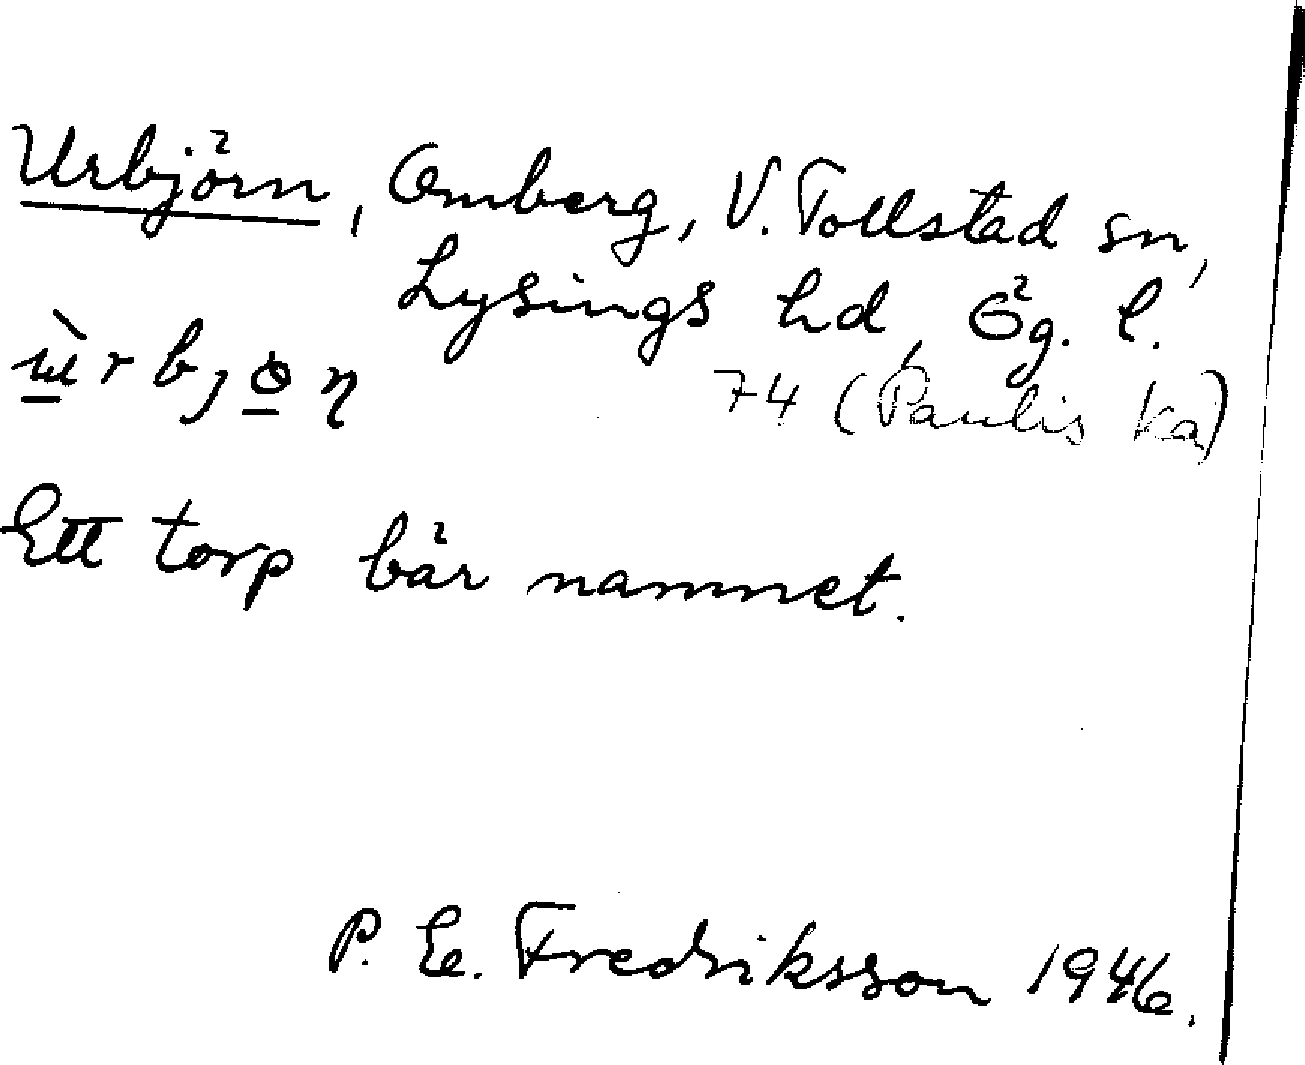 Urbjörn, Omberg, V. Tollstad sn,
Lysings hd, Ög. l.
74 (Paulis ka)
Ett torp bär namnet.
P. E. Fredriksson 1946.